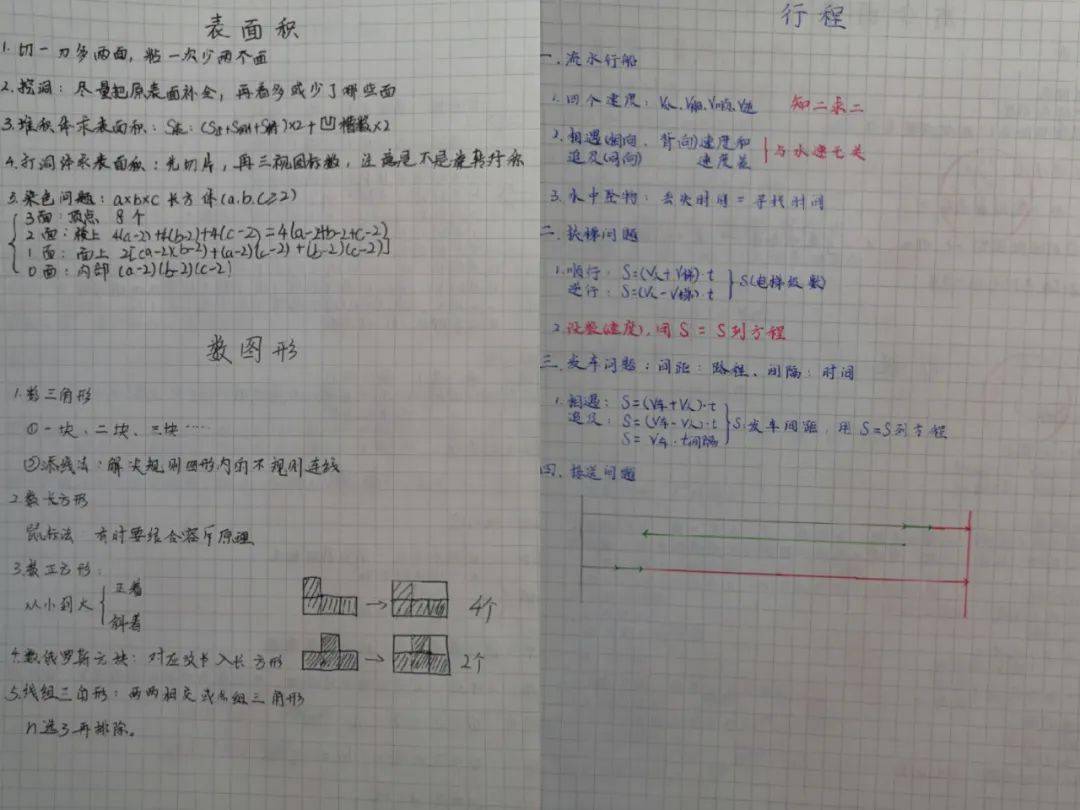 表面积
1.切一刀多两面，粘一次少两个面
2.挖洞：尽量把原表面补全，再看多或少了哪些面
3.堆积体求表面积：S总：(S上+S前+S左)×2+凹槽数×2
4.打洞体求表面积：先切片，再三视图标数，注意是不是旋转对称
5.染色问题：a×b×c 长方体(a.b.c≥2)
3面：顶点 8个
2面：棱上 4(a-2)+4(b-2)+4(c-2)=4(a-2+b-2+c-2)
1面：面上 2[(a-2)(b-2)+(a-2)(c-2)+(b-2)(c-2)]
0面：内部 (a-2)(b-2)(c-2)
数图形
1.数三角形
①一块、二块、三块……
②添线法：解决规则图形内的不规则连线
2.数长方形
鼠标法 有时要结合容斥原理
3.数正方形：
从小到大
正着
斜着
4个
4.数俄罗斯方块：对应放书入长方形
2个
5.线组三角形：两两相交或然组三角形
n选3再排除。
行程
一.流水行船
1.四个速度：V人.V船.V顺.V逆 知二求二
2.相遇(相向，背向)速度和
追及(同向) 速度差
与水速无关
3.水中坠物：丢失时间=寻找时间
二.扶梯问题
1.顺行：S=(V人+V梯)·t
逆行：S=(V人-V梯)·t
S(电梯级数)
2.设数(速度)，用S=S列方程
三.发车问题；间距：路程、间隔：时间
1.相遇：S=(V车+V人)·t
追及：S=(V车-V人)·t
S=V车·t间隔
S:发车间距，用S=S列方程
四.接送问题